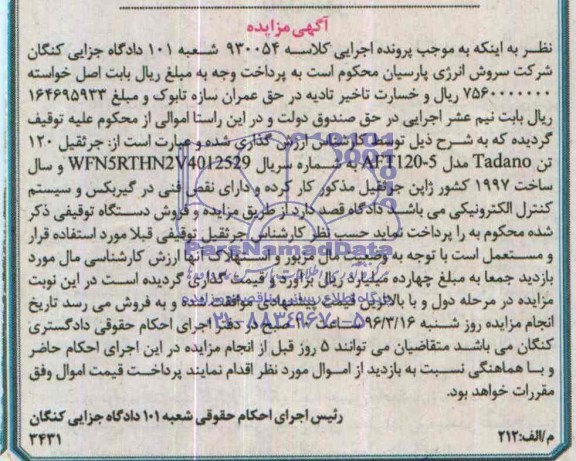 آگهی مزایده
نظر به اینکه به موجب پرونده اجرایی کلاسه ۹۳۰۰۵۴ شعبه ۱۰۱ دادگاه جزایی کنگان
شرکت سروش انرژی پارسیان محکوم است به پرداخت وجه به مبلغ ریال بابت اصل خواسته
۷۵۶۰۰۰۰۰۰۰ ریال و خسارت تاخیر تادیه در حق عمران سازه تابوک و مبلغ ۱۶۴۶۹۵۹۳۳
ریال بابت نیم عشر اجرایی در حق صندوق دولت و در این راستا اموالی از محکوم علیه توقیف
گردیده که به شرح ذیل توسط کارشناس ارزش گذاری شده و عبارت است از: جرثقیل ۱۲۰
تن Tadano مدل AFT120-5 به شماره سریال WFN5RTHN2V4012529 و سال
ساخت ۱۹۹۷ کشور ژاپن جرثقیل مذکور کار کرده و دارای نقص فنی در گیربکس و سیستم
کنترل الکترونیکی می باشد دادگاه قصد دارد از طریق مزایده و فروش دستگاه توقیفی ذکر
شده محکوم به را پرداخت نماید حسب نظر کارشناس جرثقیل توقیفی قبلا مورد استفاده قرار
و مستعمل است با توجه به وضعیت مال مزبور و استهلاک آنها ارزش کارشناسی مال مورد
بازدید جمعا به مبلغ چهارده میلیارد ریال برآورد و قیمت گذاری گردیده است در این نوبت
مزایده در مرحله دول و با بالاترین قیمت پیشنهادی موافقت شده و به فروش می رسد تاریخ
انجام مزایده روز شنبه ۹۶/۳/۱۶ ساعت ۱۰ صبح در دفتر اجرای احکام حقوقی دادگستری
کنگان می باشد متقاضیان می توانند ۵ روز قبل از انجام مزایده در این اجرای احکام حاضر
و با هماهنگی نسبت به بازدید از اموال مورد نظر اقدام نمایند پرداخت قیمت اموال وفق
مقررات خواهد بود.
رئیس اجرای احکام حقوقی شعبه ۱۰۱ دادگاه جزایی کنگان
م/الف:۲۱۲
۳۴۳۱
ParsNamadData
۰۲۱-۸۸۳۴۹۶۷۰-۵